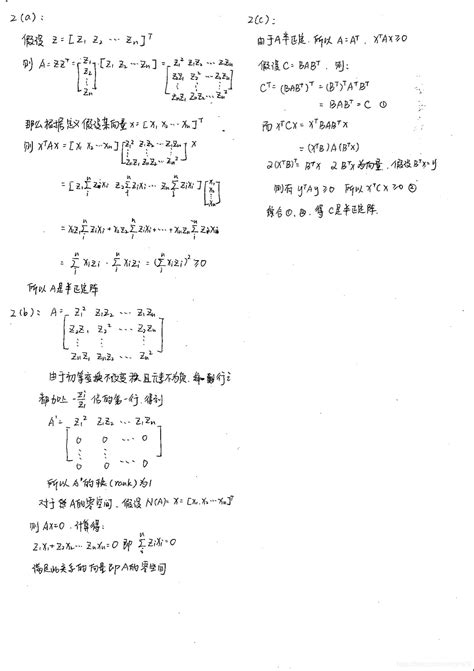 2(a):
假设 z = [z₁ z₂ ⋯ zₙ]ᵀ
则 A = zzᵀ = [z₁ z₂ ⋮ zₙ] [z₁ z₂ ⋯ zₙ] = [z₁² z₁z₂ ⋯ z₁zₙ
z₂z₁ z₂² ⋯ z₂zₙ
⋮ ⋮ ⋮
zₙz₁ zₙz₂ ⋯ zₙ²]
那么根据定义 假设某向量 x = [x₁ x₂ ⋯ xₙ]ᵀ
则 xᵀAx = [x₁ x₂ ⋯ xₙ] [z₁² z₁z₂ ⋯ z₁zₙ
⋮
zₙz₁ zₙz₂ ⋯ zₙ²] x
= [z₁ Σzᵢxᵢ z₂ Σzᵢxᵢ ⋯ zₙ Σzᵢxᵢ] [x₁ x₂ ⋮ xₙ]
= x₁z₁ Σzᵢxᵢ + x₂z₂ Σzᵢxᵢ + ⋯ + xₙzₙ Σzᵢxᵢ
= Σxᵢzᵢ · Σxᵢzᵢ = (Σxᵢzᵢ)² ≥ 0
所以 A是半正定阵
2(b): A = [z₁² z₁z₂ ⋯ z₁zₙ
z₂z₁ z₂² ⋯ z₂zₙ
⋮ ⋮ ⋮
zₙz₁ zₙz₂ ⋯ zₙ²]
由于初等变换不改变秩 且元素不为负, 每行i
都加上 -zᵢ/z₁ 倍的第一行, 得到
A' = [z₁² z₁z₂ ⋯ z₁zₙ
0 0 ⋯ 0
⋮ ⋮ ⋮
0 0 ⋯ 0]
所以 A'的秩(rank)为1
对于 A的零空间, 假设 N(A) = x = [x₁ x₂ ⋯ xₙ]ᵀ
则 Ax=0, 计算得:
z₁x₁+z₂x₂ ⋯ zₙxₙ=0 即 Σzᵢxᵢ=0
满足此关系的向量即A的零空间
2(c):
由于A半正定, 所以 A=Aᵀ, xᵀAx≥0
假设 C = BABᵀ, 则:
Cᵀ = (BABᵀ)ᵀ = (Bᵀ)ᵀAᵀBᵀ
= BABᵀ = C ①
而 xᵀCx = xᵀBABᵀx
= (xᵀB)A(Bᵀx)
又(xᵀB)ᵀ = Bᵀx 又 Bᵀx 为向量, 假设 Bᵀx=y
则有 yᵀAy ≥ 0 所以 xᵀCx ≥ 0 ②
综合①,②, 得 C是半正定阵.